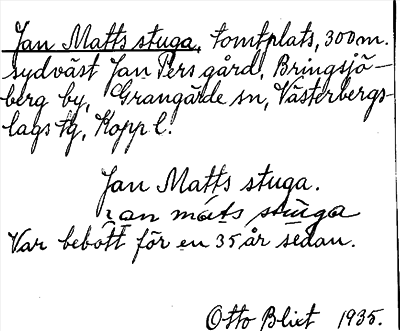 Jan Matts stuga, tomtplats, 300 m.
sydväst Jan Pers gård, Bringsjö-
berg by, Grangärde sn, Västerbergs-
lags tg, Kopp l.
Jan Matts stuga.
jan mats stuga
Var bebott för en 35 år sedan.
Otto Blixt 1935.